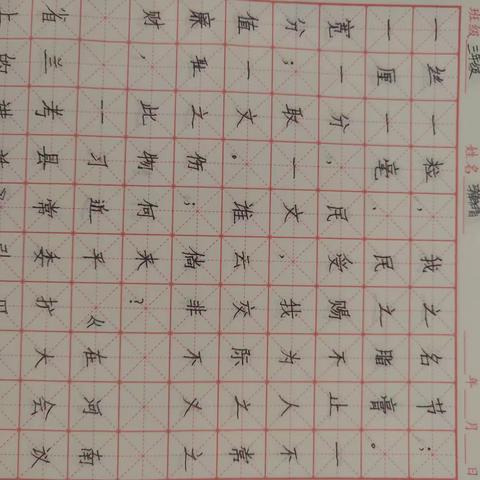 班级 三年级 姓名 年 月 日
一丝一粒，我之名节；
一厘一毫，民之脂膏。
宽一分，民受赐不止一
分；取一文，我为人不
值一文。谁云交际之常
廉耻之伤；倘非不义之
财，此物何来？
——习近平《在河南
省兰考县常委扩大会议
上的讲